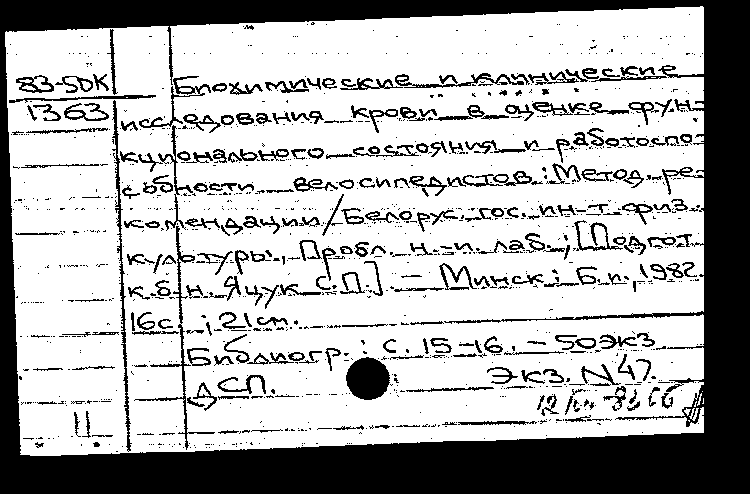 83-5DK
1363
Биохимические и клинические
исследования крови в оценке фун-
кционального состояния и работоспо-
собности велосипедистов: Метод. ре-
комендации/Белорус. гос. ин-т физ.
культуры, Пробл. н.-и. лаб.; [Подгот.
к.б.н. Яцук С.П.]. — Минск: Б.и., 1982.
16с.; 21см.
Библиогр.: с. 15-16. — 50экз.
ДСП. Экз. N47.
11